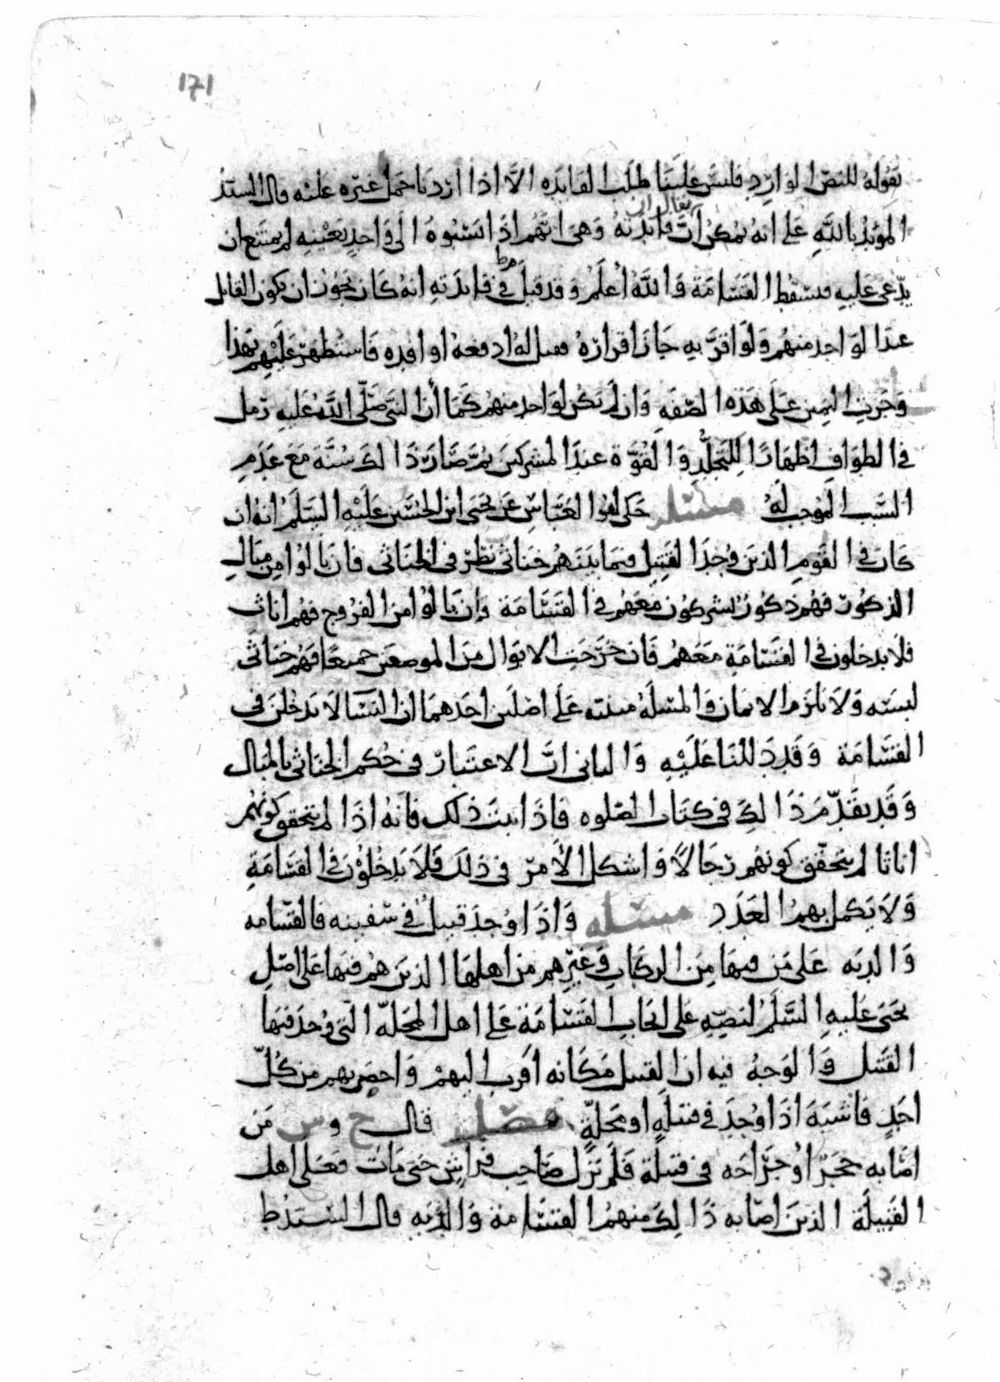 171
نقوله للنص الوارد فليس علينا طلب الفايده الا اذا اردنا حمل غيره عليه قال السيد
المؤيد بالله على انه يمكن ان يقال ان فائدته وهي انهم اذا نسبوه الى واحد بعينه لم يمتنع ان
يدعى عليه فسقط القسامة والله أعلم وقد قيل في فائدته انه كان يجوز ان يكون القاتل
عبدا لواحد منهم ولو اقر به جاز اقراره فقيل له ادفعه او افده فاستظهر عليهم بهذا
وجرت اليمين على هذه الصفه وان لم يكن لواحد منهم كما أن النبي صلى الله عليه رمل
في الطواف اظهارا للتجلد والقوة عند المشركين ثم صار ذا لك سنه مع عدم
السبب الموجب له مسئله حكى ابو العباس عن يحيى ابن الحسين عليه السلم انه ان
كان في القوم الذين وجد القتيل فيما بينهم خناثى نظر في الخناثى فان بالوا من مبال
الذكور فهم ذكور يشركون معهم في القسامة وان بالوا من الفروج فهم اناث
فلا يدخلون في القسامة معهم فان خرجت الابوال من الموضعين جميعا فهم خناثى
لبسه ولا يلزم الايمان والمسئله مبنيه على اصلين احدهما ان النسآ لا يدخلن في
القسامة وقد دللنا عليه والثاني ان الاعتبار في حكم الخناثى بالمبال
وقد تقدم ذا لك في كتاب الصلوه فاذا ثبت ذلك فانه اذا لم يتحقق كونهم
اناثا لم يتحقق كونهم رجالا واشكل الأمر في ذلك فلا يدخلون في القسامة
ولا يكمل بهم العدد مسئله واذا وجد قتيل في سفينه فالقسامه
والديه على من فيها من الركاب وغيرهم من اهلها الذين هم فيها على اصل
يحيى عليه السلم لنصه على ايجاب القسامة على اهل المحلة التي وجد فيها
القتيل والوجه فيه ان القتيل مكانه اقرب اليهم واحصر بهم من كل
احد فاشبه اذا وجد في قبيلة او محلة مسئله قال ح وس من
اصابه حجر او جراحه في قبيلة فلم يزل صاحب فراش حتى مات فعلى اهل
القبيلة الذين اصابه ذا لك منهم القسامة والديه قال السيد ط